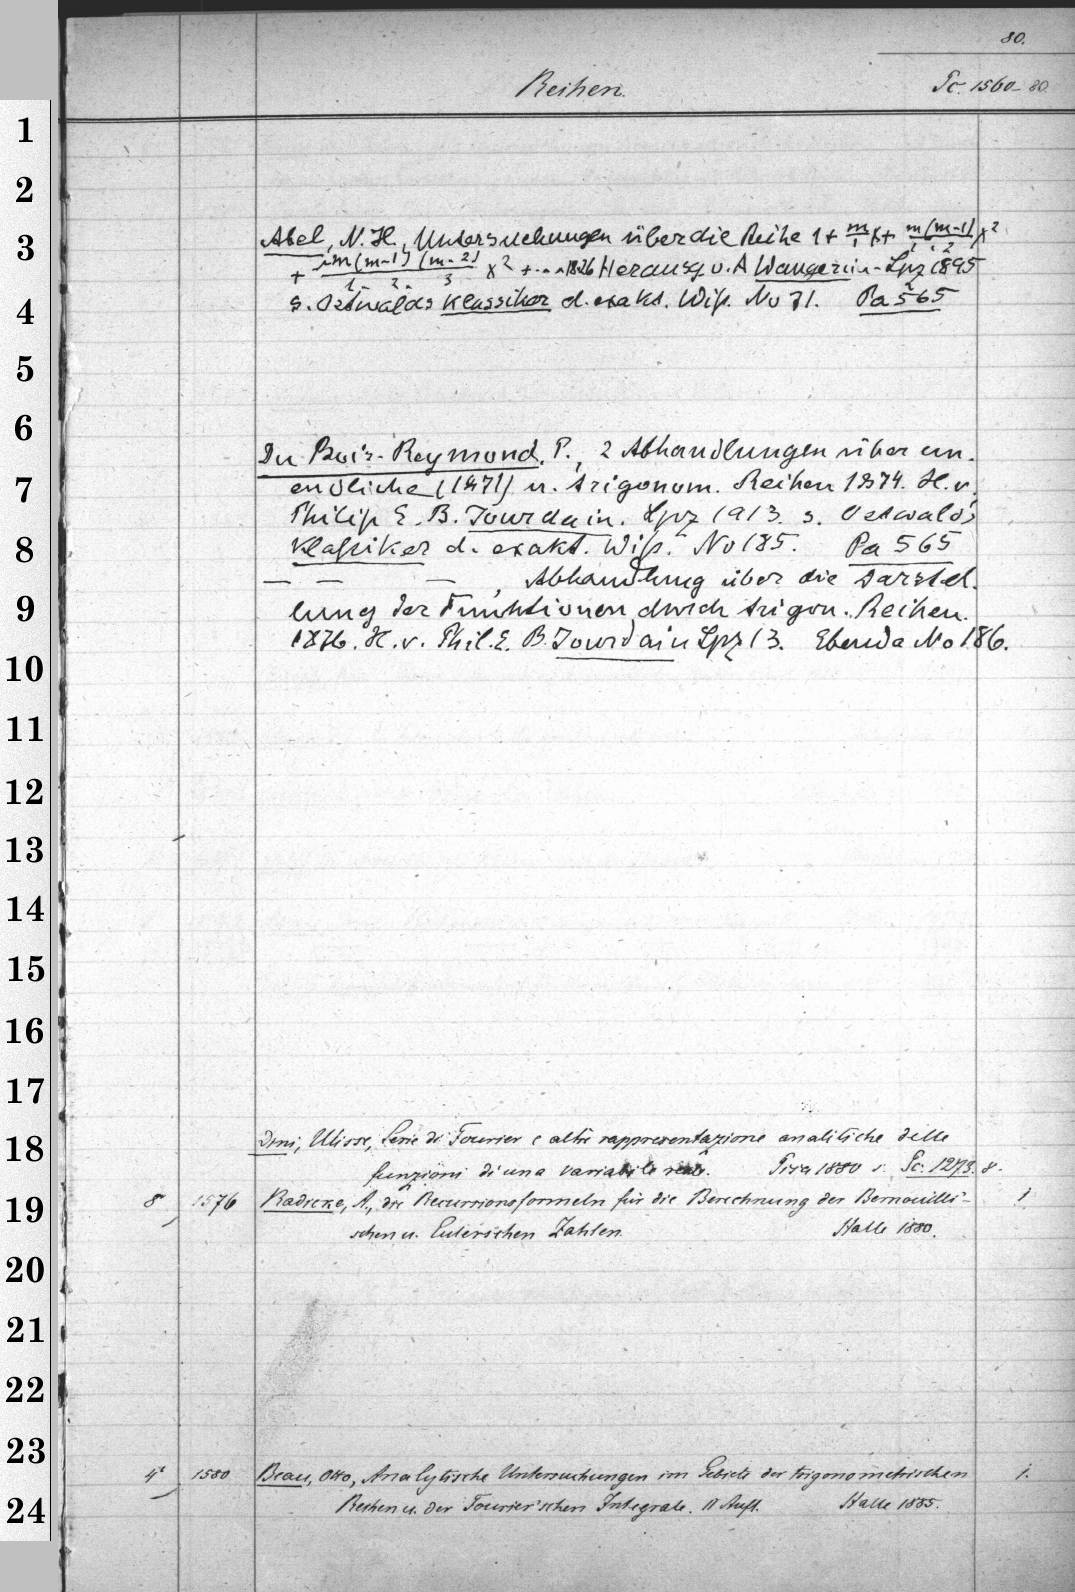 80.
Reihen.
Sc. 1560-80.
1
2
3
4
5
6
7
8
9
10
11
12
13
14
15
16
17
18
19
20
21
22
23
24
Abel, N. H., Untersuchungen über die Reihe 1 + m/1 x + m(m-1)/1·2 x²
+ m(m-1)(m-2)/1·2·3 x² + ... 1826 Herausg v. A Wangerin - Lpz 1895
s. Ostwalds Klassiker d. exakt. Wiß. No 71. Pa 565
Du Bois-Reymond, P., 2 Abhandlungen über un-
endliche (1871) u. trigonom. Reihen 1874. H. v.
Philip E. B. Jourdain. Lpz 1913. s. Ostwald's
Klaßiker d. exakt. Wiß. No 185. Pa 565
— — —, Abhandlung über die Darstel-
lung der Funktionen durch trigon. Reihen.
1876. H. v. Phil. E. B. Jourdain Lpz 13. Ebenda No 186.
Dini, Ulisse, Serie di Fourier e altre rappresentazione analitiche delle
funzioni di una variabile reale. Pisa 1880 s. Sc. 1273. 8.
8 1576 Radicke, A., die Recursionsformeln für die Berechnung der Bernouilli'- 1
schen u. Euler'schen Zahlen. Halle 1880.
4° 1580 Beau, Otto, Analytische Untersuchungen im Gebiete der trigonometrischen 1.
Reihen u. der Fourier'schen Integrale. II Aufl. Halle 1885.